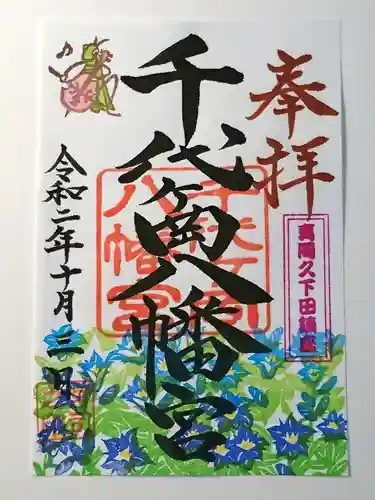 奉拝
真岡久下田鎮座
千代ヶ岡八幡宮
千代ヶ岡
八幡宮
令和二年十月三日